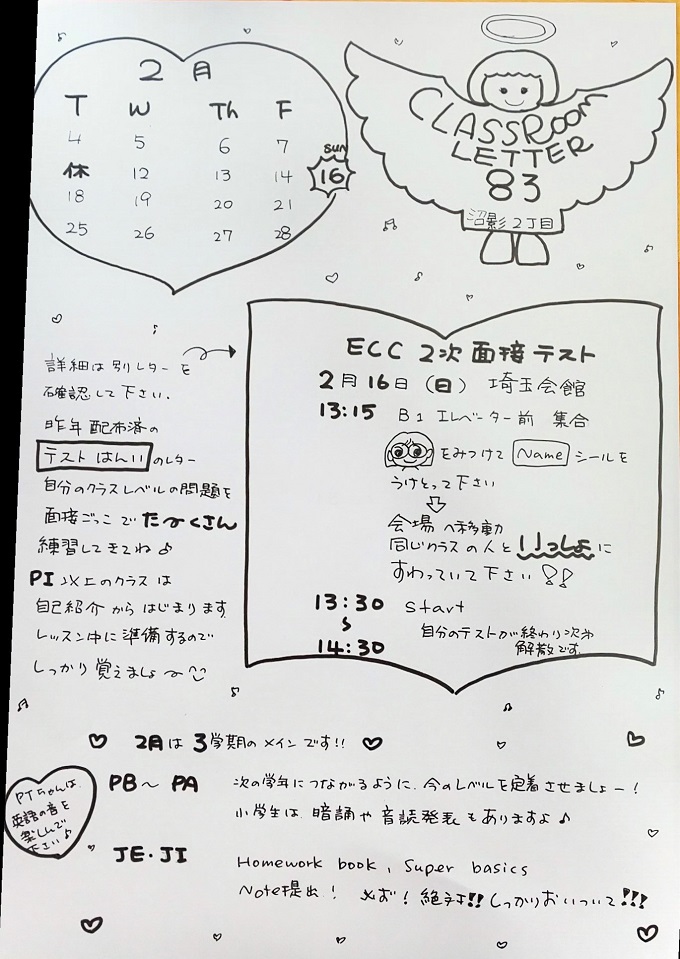 2月
T W Th F
4 5 6 7
休 12 13 14
sun
16
18 19 20 21
25 26 27 28
CLASSROOM
LETTER
83
沼影2丁目
詳細は別レターを
確認して下さい.
昨年配布済の
テストはんい のレター
自分のクラスレベルの問題を
面接ごっこでた〜くさん
練習してきてね♪
PI 以上のクラスは
自己紹介からはじまります.
レッスン中に準備するので
しっかり覚えましょ〜
ECC 2次面接テスト
2月16日(日) 埼玉会館
13:15 B1 エレベーター前 集合
をみつけて Name シールを
うけとって下さい
⇩
会場へ移動
同じクラスの人といっしょに
すわっていて下さい!!
13:30 start
〜
14:30
自分のテストが終わり次第
解散です.
♡ 2月は3学期のメインです!! ♡
PTちゃんは、
英語の音を
楽しんで
下さい♪
PB〜PA 次の学年につながるように、今のレベルを定着させましょー!
小学生は、暗誦や音読発表もありますよ♪
JE・JI Homework book, Super basics
Note提出! 必ず! 絶対!! しっかりおいついて!!!